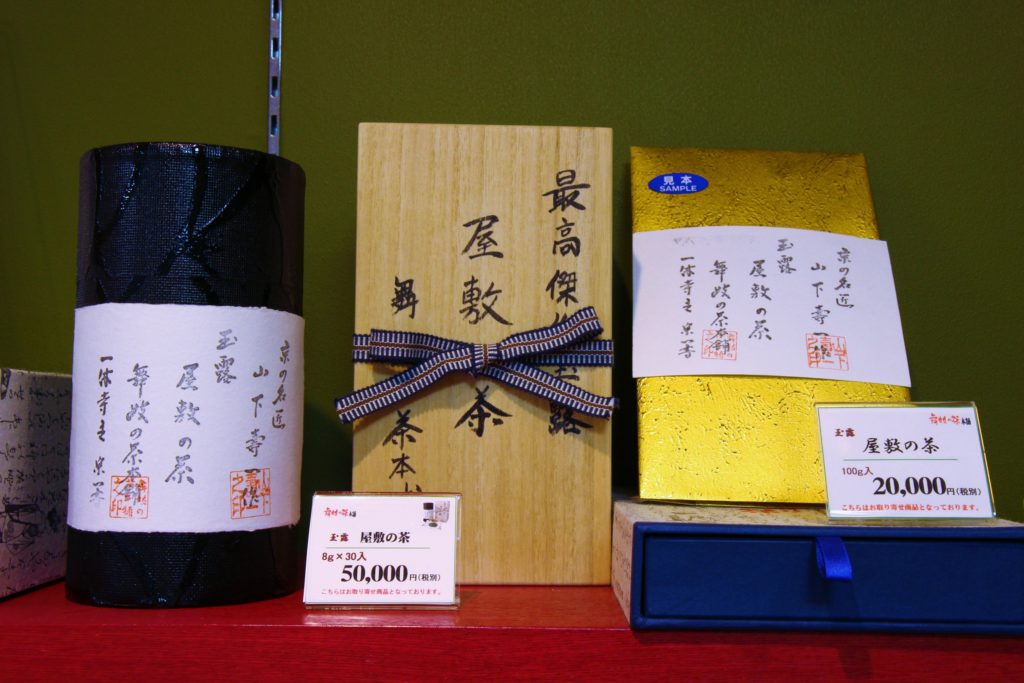 京の名匠
山下壽一作
玉露
屋敷の茶
舞妓の茶本舗
一休寺主
最高傑作玉露
屋敷茶
舞
茶本
玉露 屋敷の茶
8g×30入
50,000円(税別)
こちらはお取り寄せ商品となっております。
見本
SAMPLE
京の名匠
山下壽一作
玉露
屋敷の茶
舞妓の茶本舗
一休寺主
玉露 屋敷の茶
100g入
20,000円(税別)
こちらはお取り寄せ商品となっております。